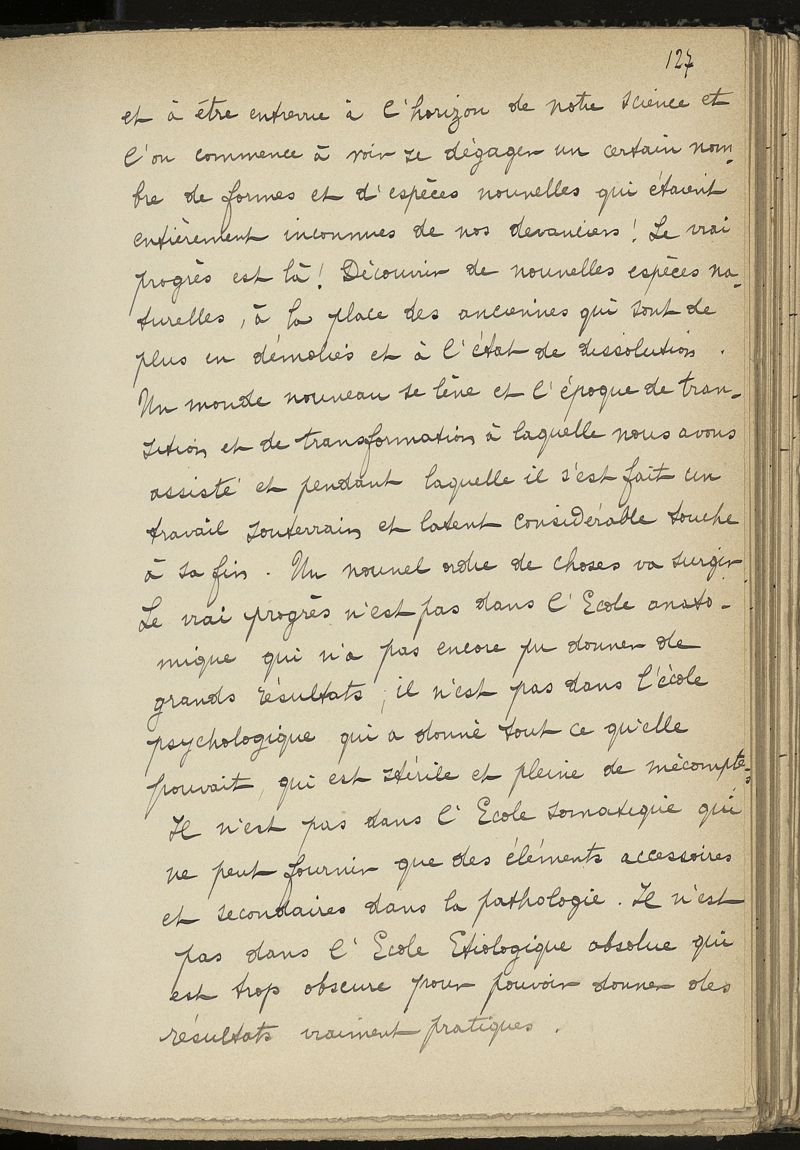 127
et à être entrevue à l'horizon de notre science et
l'on commence à voir se dégager un certain nom-
bre de formes et d'espèces nouvelles qui étaient
entièrement inconnues de nos devanciers! Le vrai
progrès est là! Découvrir de nouvelles espèces na-
turelles, à la place des anciennes qui sont de
plus en démolies et à l'état de dissolution.
Un monde nouveau se lève et l'époque de tran-
sition et de transformation à laquelle nous avons
assisté et pendant laquelle il s'est fait un
travail souterrain et latent considérable touche
à sa fin. Un nouvel ordre de choses va surgir.
Le vrai progrès n'est pas dans l'Ecole anato-
mique qui n'a pas encore pu donner de
grands résultats; il n'est pas dans l'école
psychologique qui a donné tout ce qu'elle
pouvait, qui est stérile et pleine de mécomptes
Il n'est pas dans l'Ecole somatique qui
ne peut fournir que des éléments accessoires
et secondaires dans la pathologie. Il n'est
pas dans l'Ecole Etiologique absolue qui
est trop obscure pour pouvoir donner des
résultats vraiment pratiques.